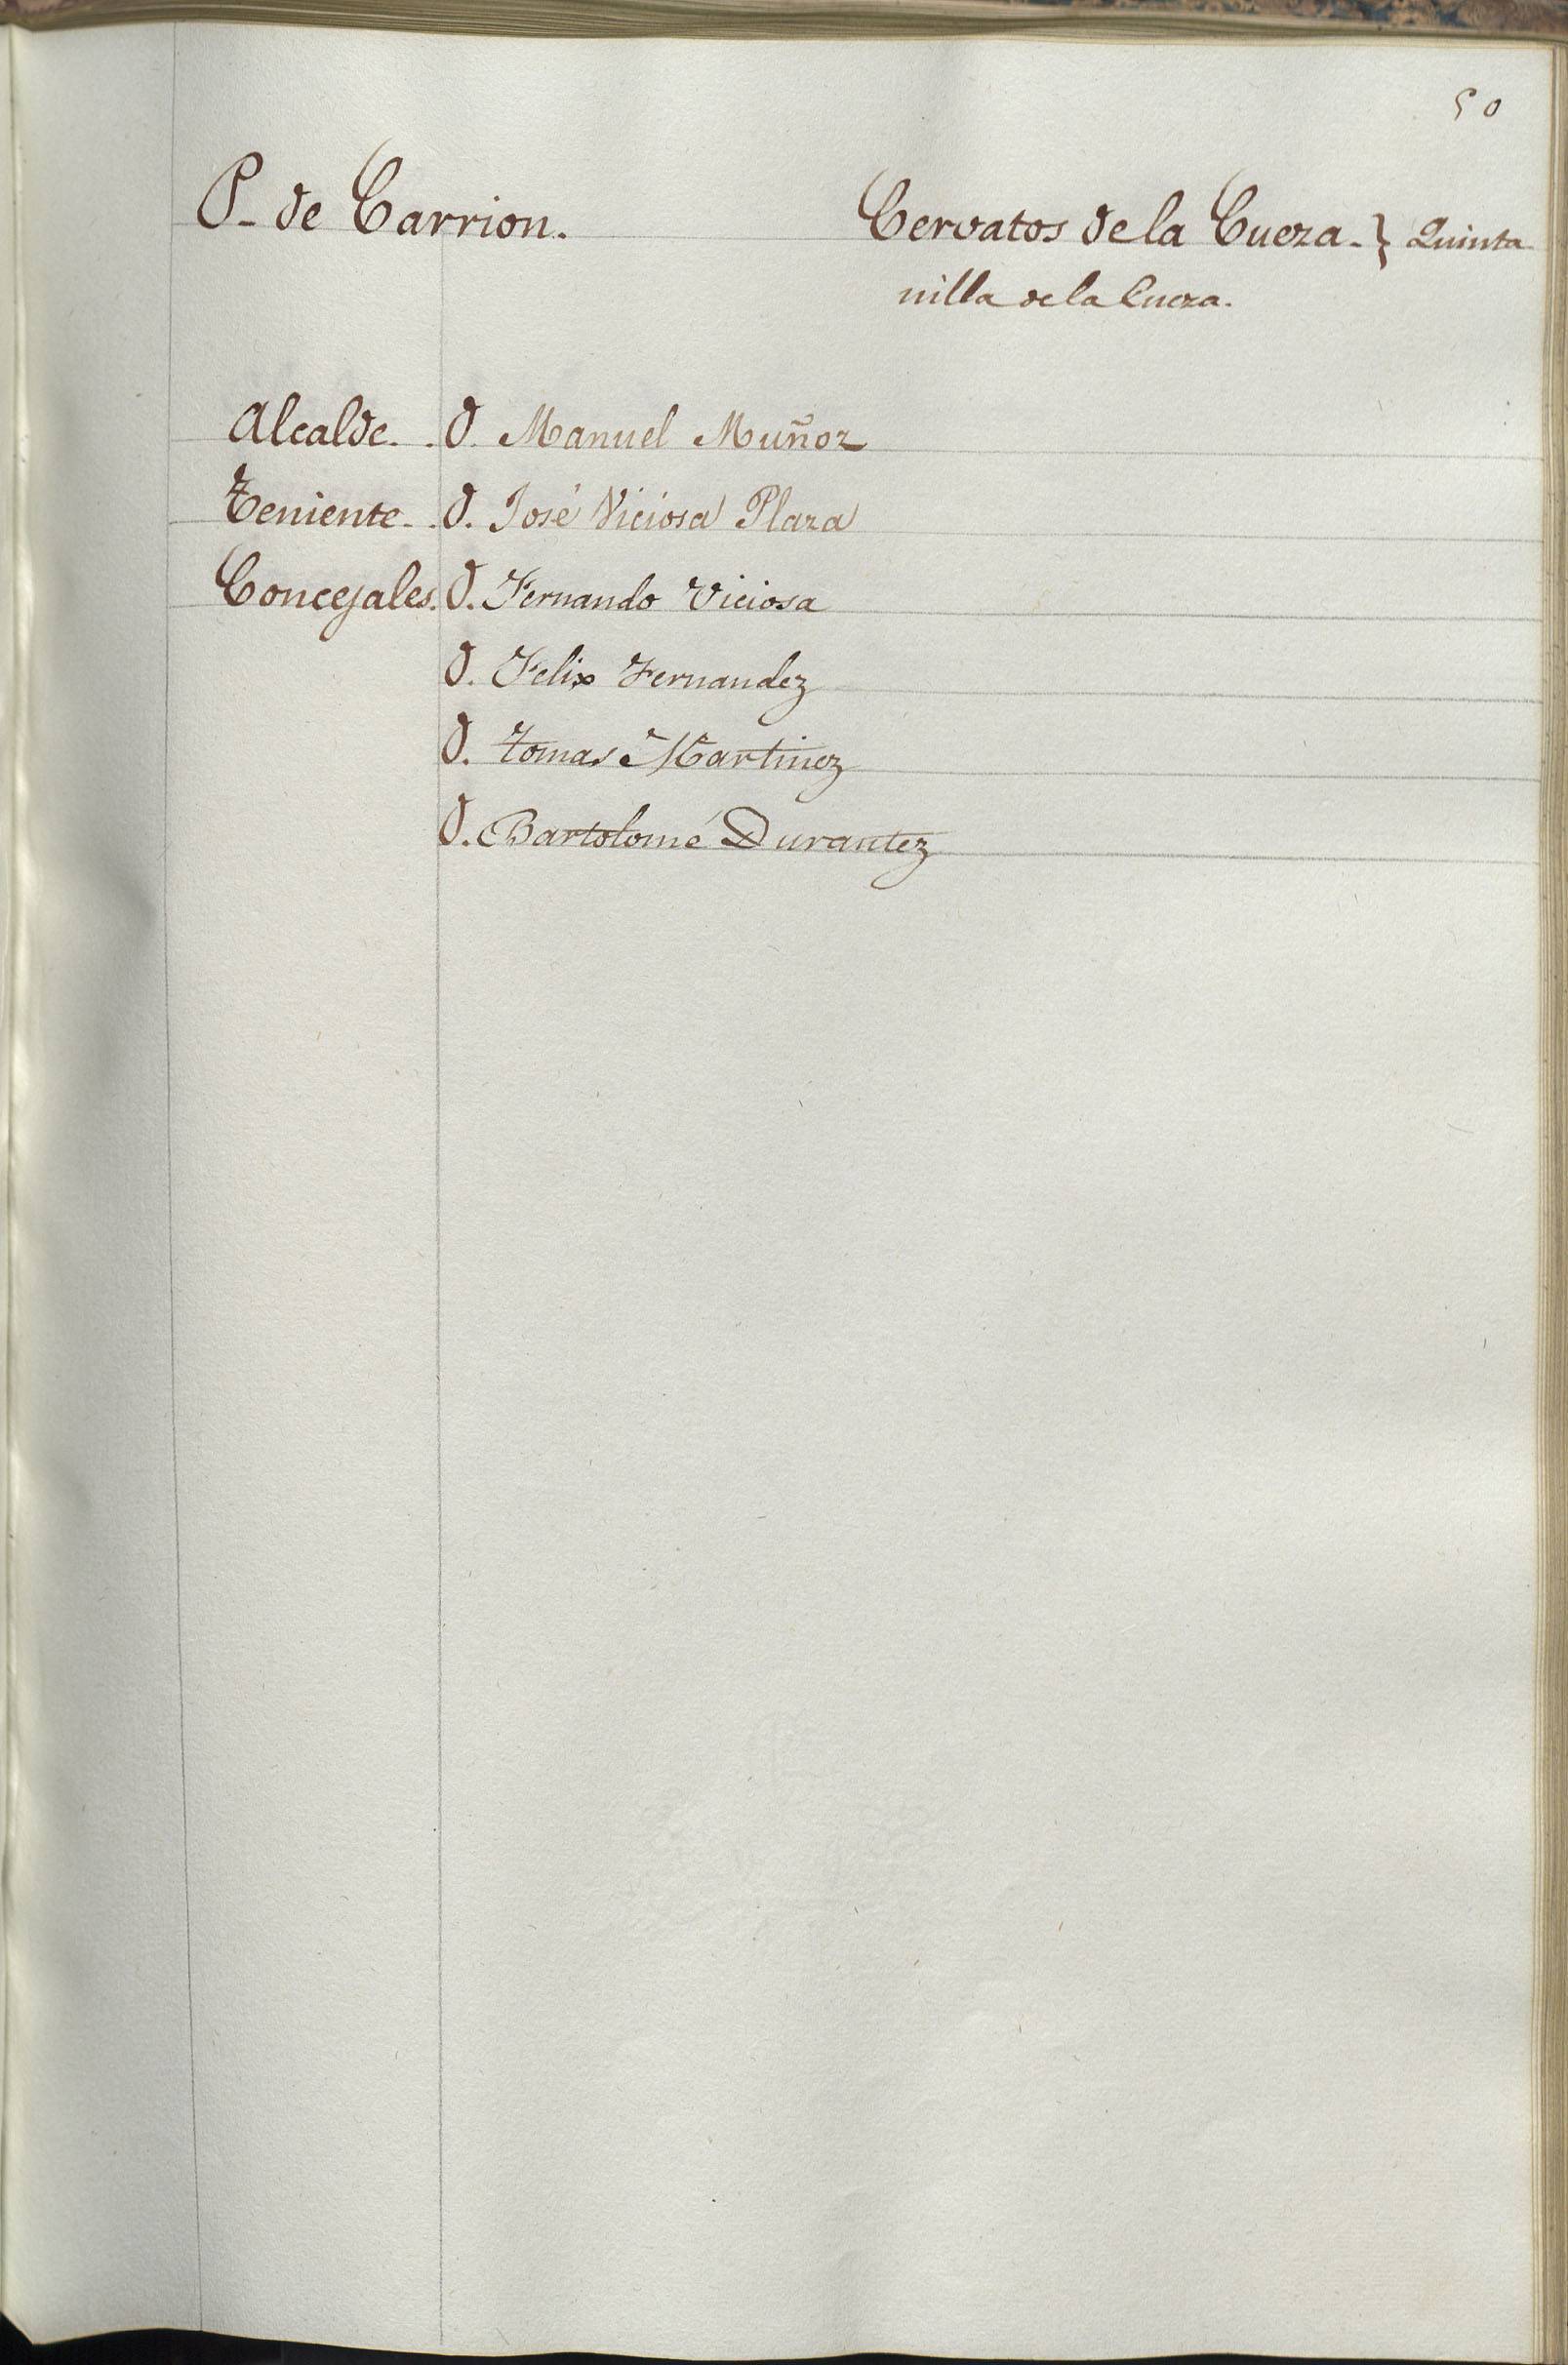 50
P. de Carrion. Cervatos de la Cueza. } Quinta
nilla de la Cueza.
Alcalde. . D. Manuel Muñoz
Teniente. . D. José Viciosa Plaza
Concejales. D. Fernando Viciosa
D. Felix Fernandez
D. Tomas Martinez
D. Bartolomé Durantez